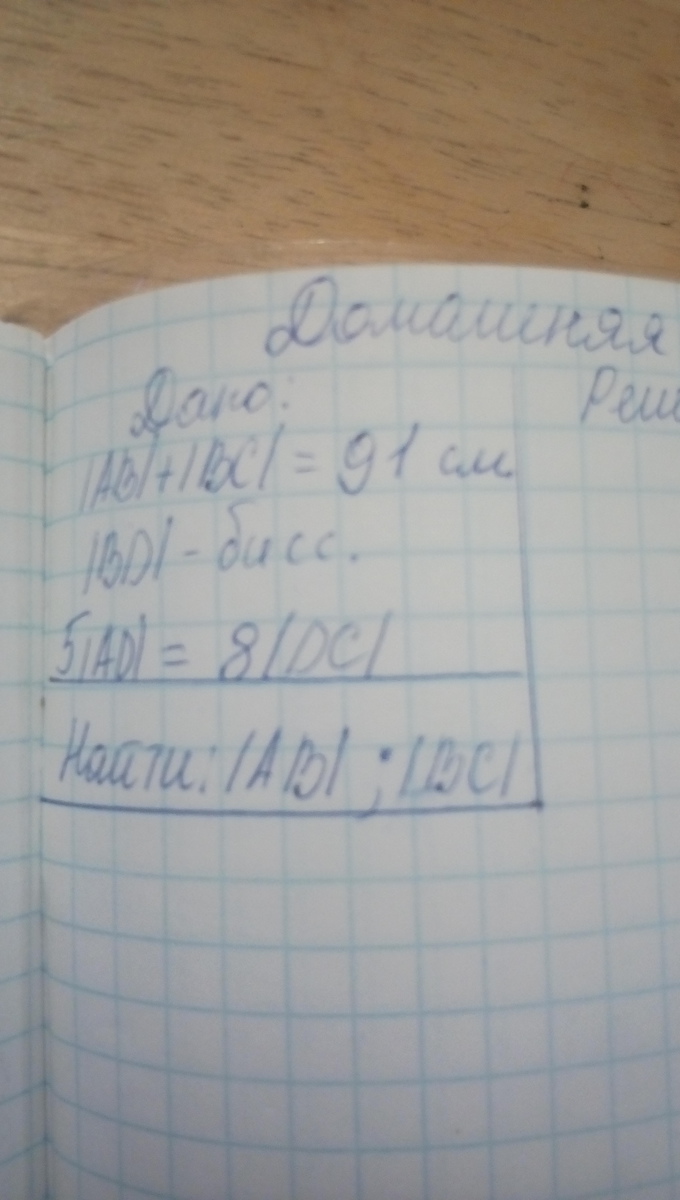 Домашняя
Дано:
Реше
|AB|+|BC| = 91 см
|BD| - бисс.
5|AD| = 8|DC|
Найти: |AB| ; |BC|